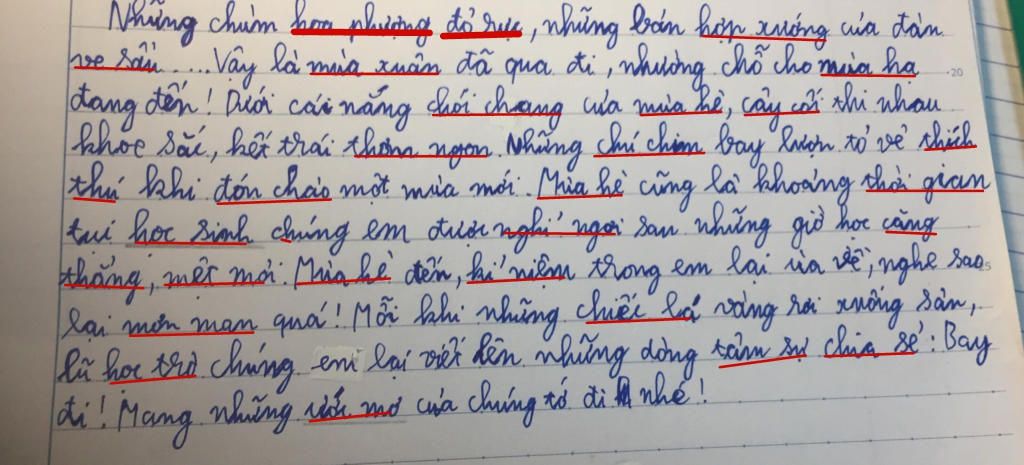 Những chùm hoa phượng đỏ rực, những bán hợp xướng của đàn
ve sầu....Vậy là mùa xuân đã qua đi, nhường chỗ cho mùa hạ
đang đến! Dưới cái nắng chói chang của mùa hè, cây cối thi nhau
khoe sắc, kết trái thơm ngon. Những chú chim bay lượn tỏ vẻ thích
thú khi đón chào một mùa mới. Mùa hè cũng là khoảng thời gian
tụi học sinh chúng em được nghỉ ngơi sau những giờ học căng
thẳng, mệt mỏi. Mùa hè đến, kỉ niệm trong em lại ùa về, nghe sao
lại mơn man quá! Mỗi khi những chiếc lá vàng rơi xuống sân,
lũ học trò chúng em lại viết lên những dòng tâm sự chia sẻ: Bay
đi! Mang những ước mơ của chúng tớ đi nhé!